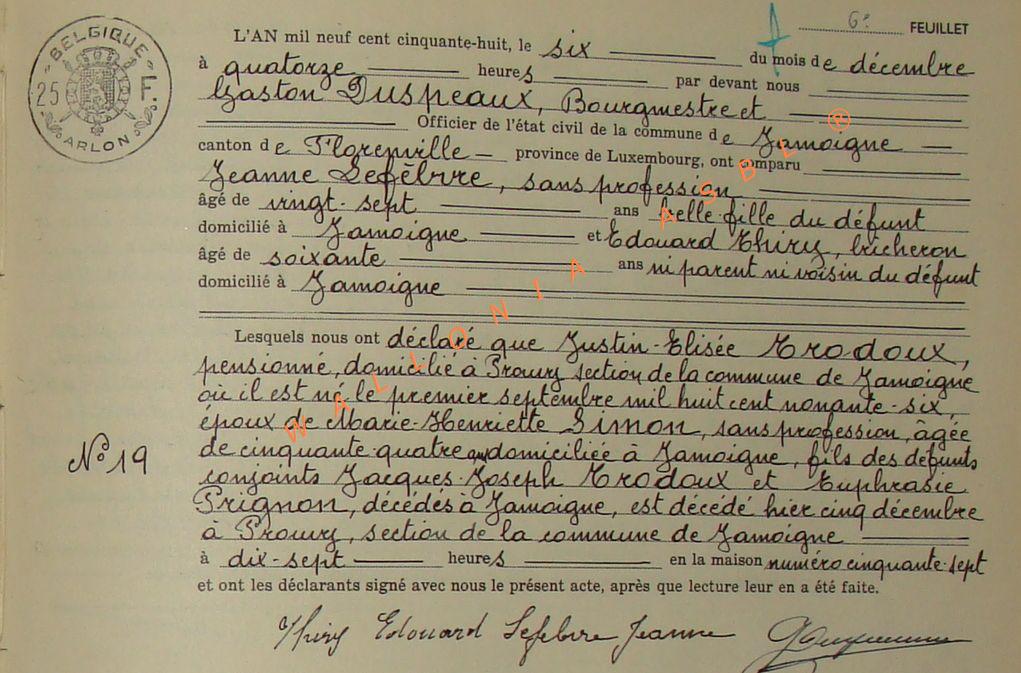 BELGIQUE
25 F.
ARLON
6e FEUILLET
L'AN mil neuf cent cinquante-huit, le six du mois de décembre
à quatorze heures par devant nous
Gaston Duspeaux, Bourgmestre et
Officier de l'état civil de la commune de Jamoigne
canton de Florenville province de Luxembourg, ont comparu
Jeanne Lefèbvre, sans profession
âgé de vingt-sept ans belle-fille du défunt
domicilié à Jamoigne et Edouard Thiry, bûcheron
âgé de soixante ans ni parent ni voisin du défunt
domicilié à Jamoigne
Lesquels nous ont déclaré que Justin-Elisée Trodoux,
pensionné, domicilié à Prouvy section de la commune de Jamoigne
où il est né le premier septembre mil huit cent nonante-six,
époux de Marie-Henriette Simon, sans profession, âgée
de cinquante-quatre ans domiciliée à Jamoigne, fils des défunts
conjoints Jacques-Joseph Trodoux et Euphrasie
Prignon, décédés à Jamoigne, est décédé hier cinq décembre
à Prouvy, section de la commune de Jamoigne
à dix-sept heures en la maison numéro cinquante-sept
et ont les déclarants signé avec nous le présent acte, après que lecture leur en a été faite.
No 19
Thiry Edouard Lefebvre Jeanne
WALLONIA ASBL ®